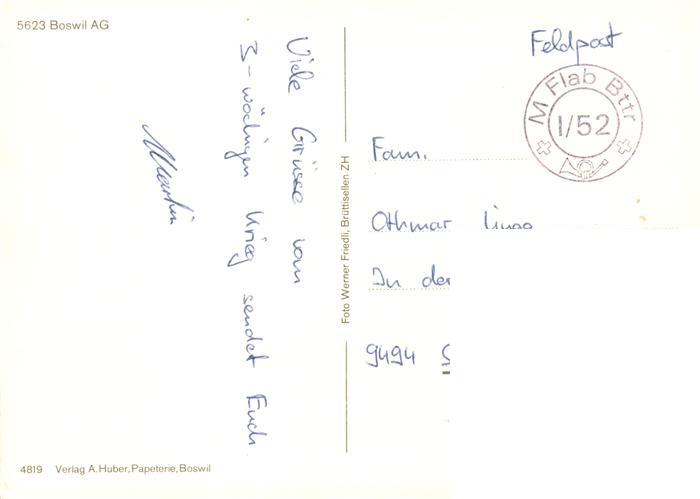 5623 Boswil AG
Viele Grüsse vom
3-wöchigen Krieg sendet Euch
Martin
Foto Werner Friedli, Brüttisellen ZH
Feldpost
M Flab Bttr
I/52
Fam.
Othmar
In der
9494 S
4819 Verlag A. Huber, Papeterie, Boswil